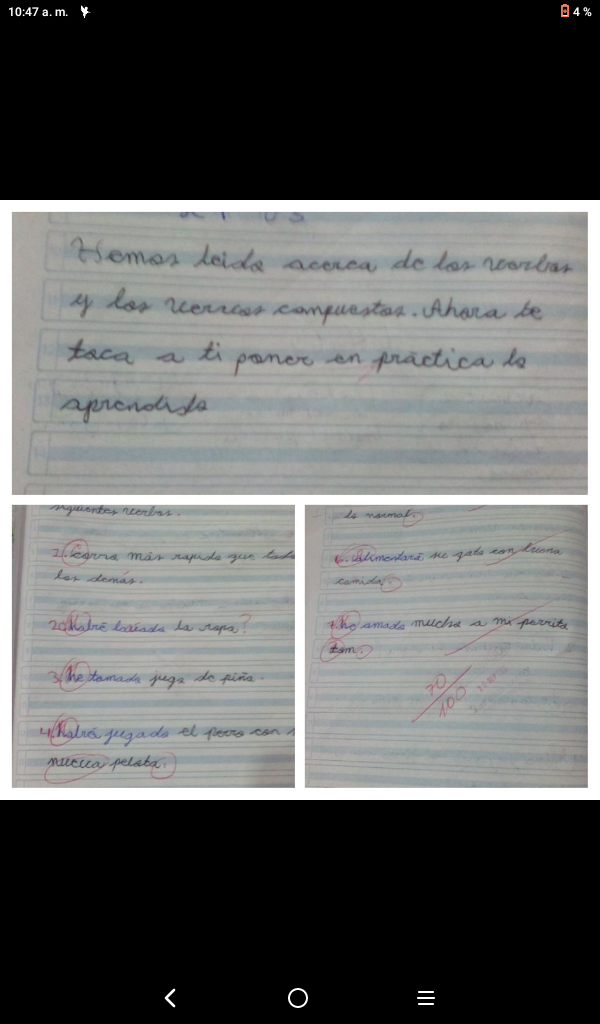 10:47 a. m.
4 %
Hemos leido acerca de los verbos
y los verbos compuestos. Ahora te
toca a ti poner en práctica lo
aprendido
siguientes verbos.
más rapido que todo
los demás.
2. Habré lavado la ropa?
3. he tomado jugo de piña.
4. Habrá jugado el perro con
pelota.
lo normal.
6. Alimentará su gato con buena
comida.
7. He amado mucho a mi perrito
tom.
70
100